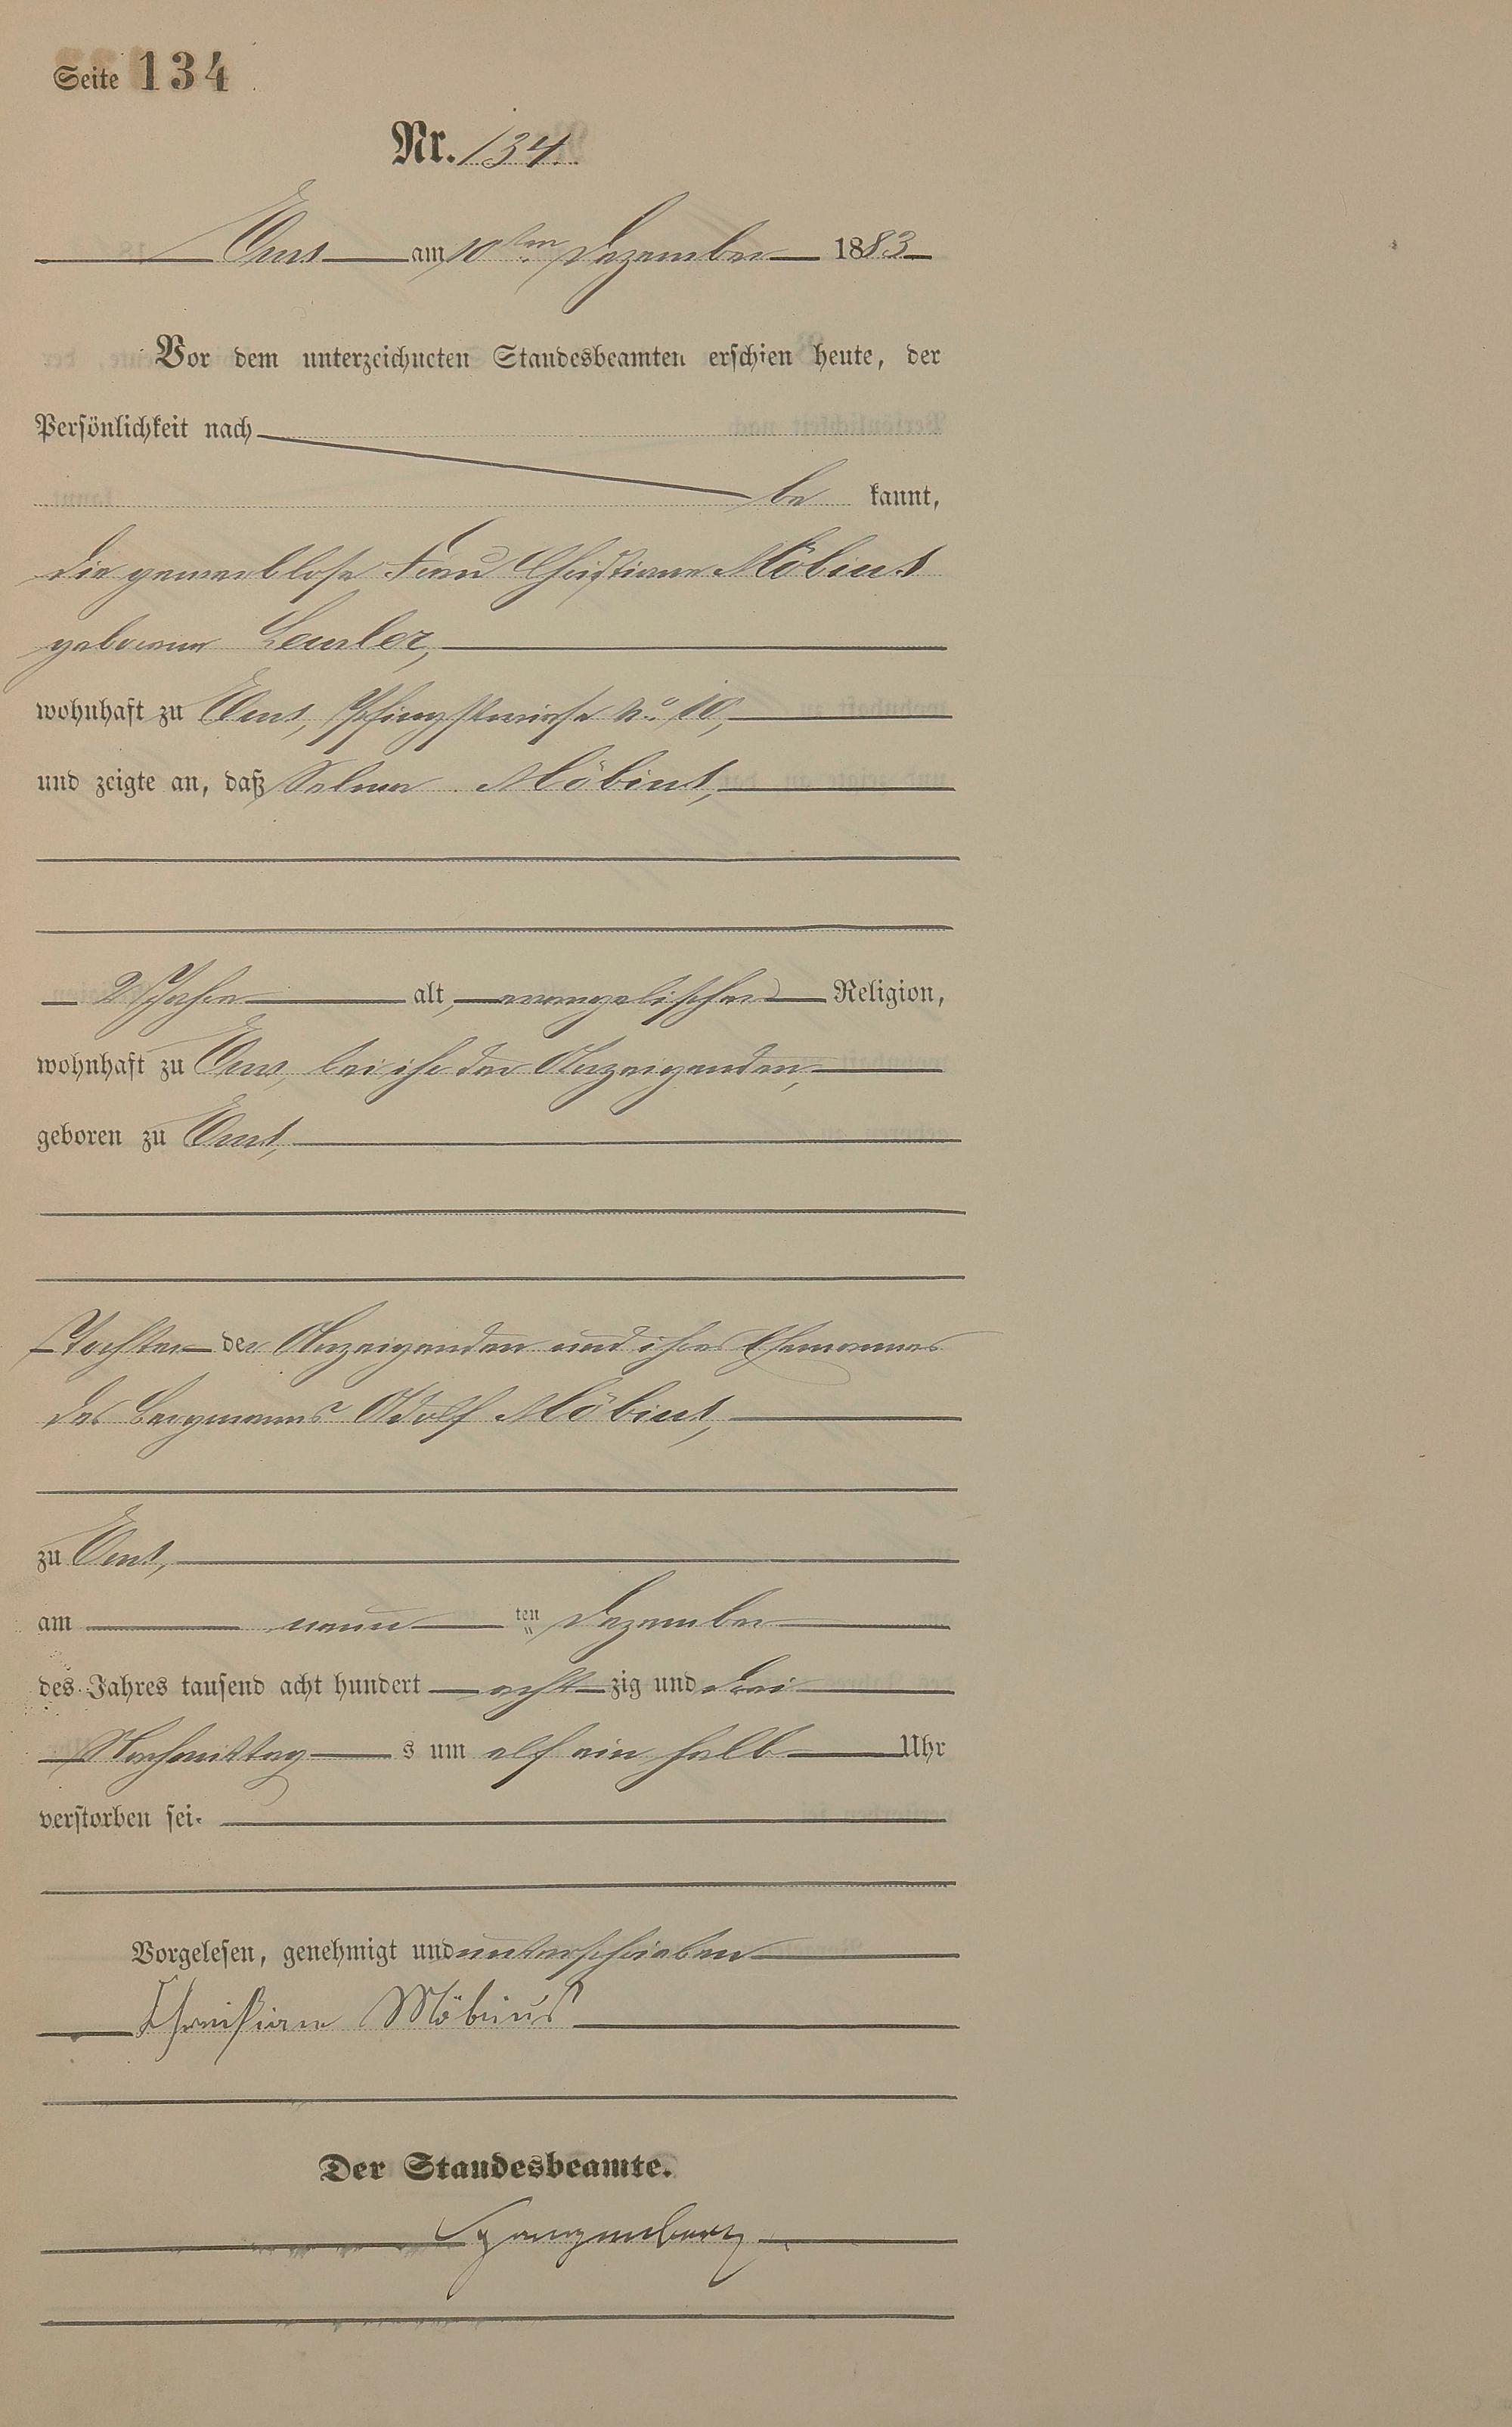 Seite 134
Nr. 134.
Ems am 10ten Dezember 1883
Vor dem unterzeichneten Standesbeamten erschien heute, der
Persönlichkeit nach
be kannt,
die gewerblose Frau Christiane Möbius
geborene
wohnhaft zu Ems, Pfingstwiese No. 10,
und zeigte an, daß Selma Möbius,
2 Jahre alt, evangelischer Religion,
wohnhaft zu Ems, bei ihr der Anzeigenden,
geboren zu Ems,
Tochter der Anzeigenden und ihres Ehemannes
des Bergmanns Adolf Möbius,
zu Ems,
am neun ten Dezember
des Jahres tausend acht hundert acht zig und drei
Nachmittag s um elf ein halb Uhr
verstorben sei.
Vorgelesen, genehmigt und unterschrieben
Christiane Möbius
Der Standesbeamte.
Spangenberg